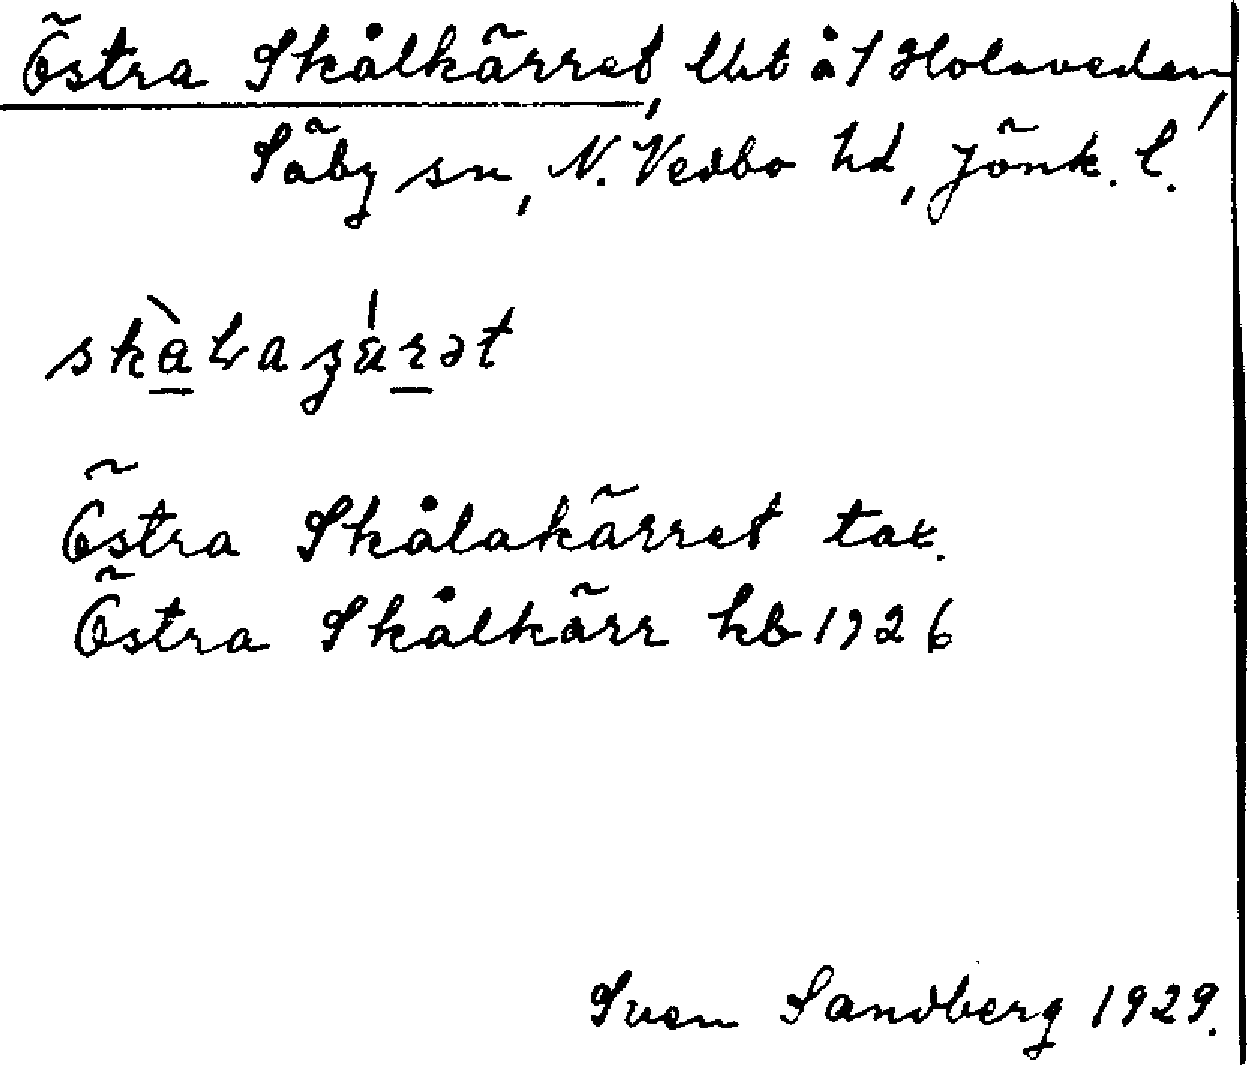 Östra Skålkärret, lht å 1 Holaveden,
Säby sn, N. Vedbo hd, Jönk. l.
Östra Skålakärret tax.
Östra Skålkärr kb 1926
Sven Sandberg 1929.